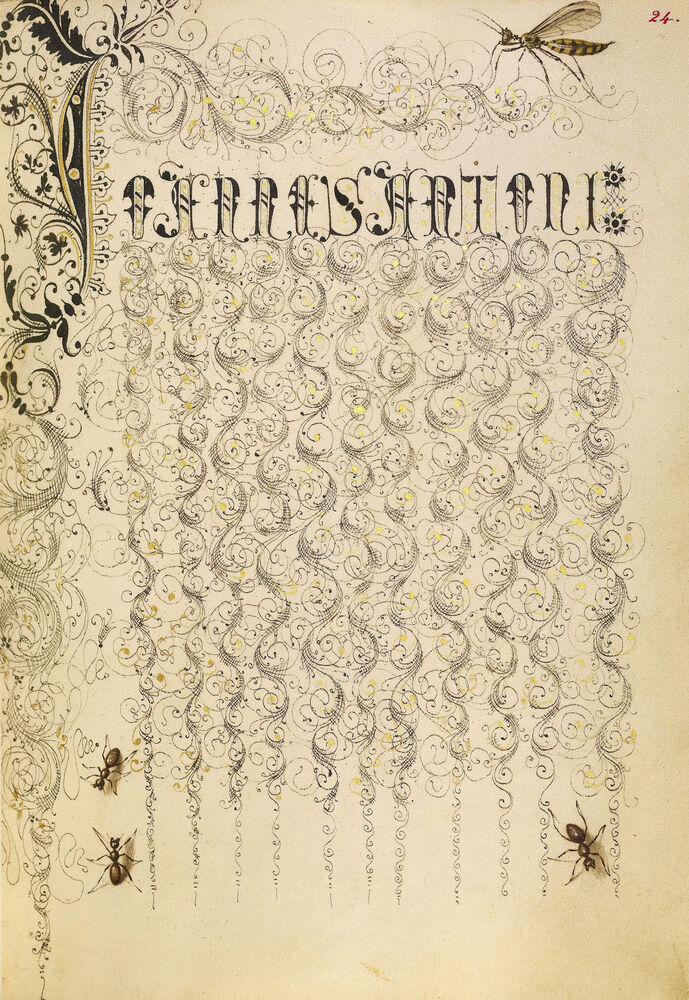 24.
IOANNES ANTONI